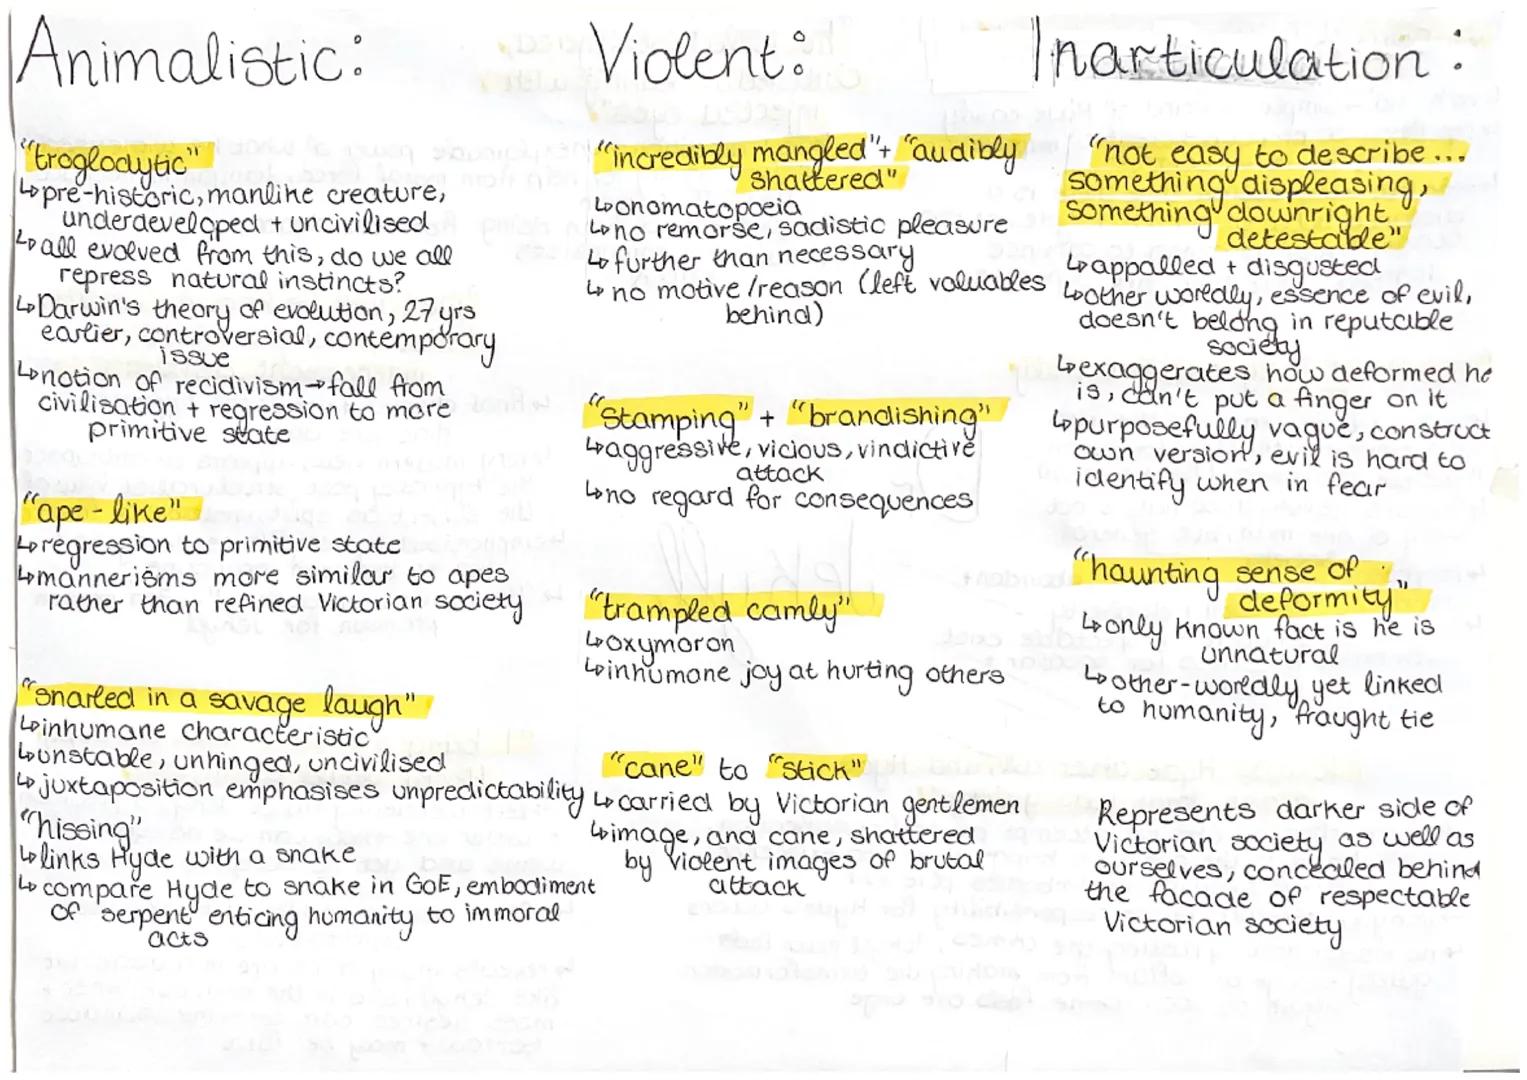 Animalistic:
"troglodytic"
↳pre-historic, manlike creature,
underdeveloped + uncivilised
↳all evolved from this, do we all
repress natural instincts?
↳Darwin's theory of evolution, 27 yrs
earlier, controversial, contemporary
issue
↳notion of recidivism→fall from
civilisation + regression to more
primitive state
"ape-like"
↳regression to primitive state
↳mannerisms more similar to apes
rather than refined Victorian society
"snarled in a savage laugh"
↳inhumane characteristic
↳unstable, unhinged, uncivilised
↳juxtaposition emphasises unpredictability
"hissing"
↳links Hyde with a snake
↳compare Hyde to snake in GoE, embodiment
of serpent enticing humanity to immoral
acts
Violent:
"incredibly mangled" + "audibly
shattered"
↳onomatopoeia
↳no remorse, sadistic pleasure
↳further than necessary
↳no motive/reason (left valuables
behind)
"Stamping" + "brandishing"
↳aggressive, vicious, vindictive
attack
↳no regard for consequences
"trampled camly"
↳oxymoron
↳inhumane joy at hurting others
"cane" to "stick"
↳carried by Victorian gentlemen
↳image, and cane, shattered
by violent images of brutal
attack
Inarticulation:
"not easy to describe...
something displeasing,
something downright
detestable"
↳appalled + disgusted
↳other woredly, essence of evil,
doesn't belong in reputable
society
↳exaggerates how deformed he
is, can't put a finger on it
↳purposefully vague, construct
own version, evil is hard to
identify when in fear
"haunting sense of
deformity"
↳only known fact is he is
unnatural
↳other-woredly yet linked
to humanity, fraught tie
Represents darker side of
Victorian society as well as
ourselves, concealed behind
the facade of respectable
Victorian society